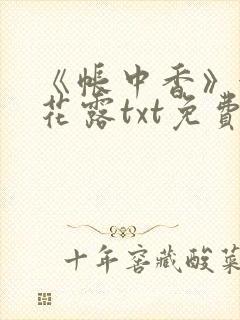 《帐中香》
花露txt免费
十年窖藏酸菜